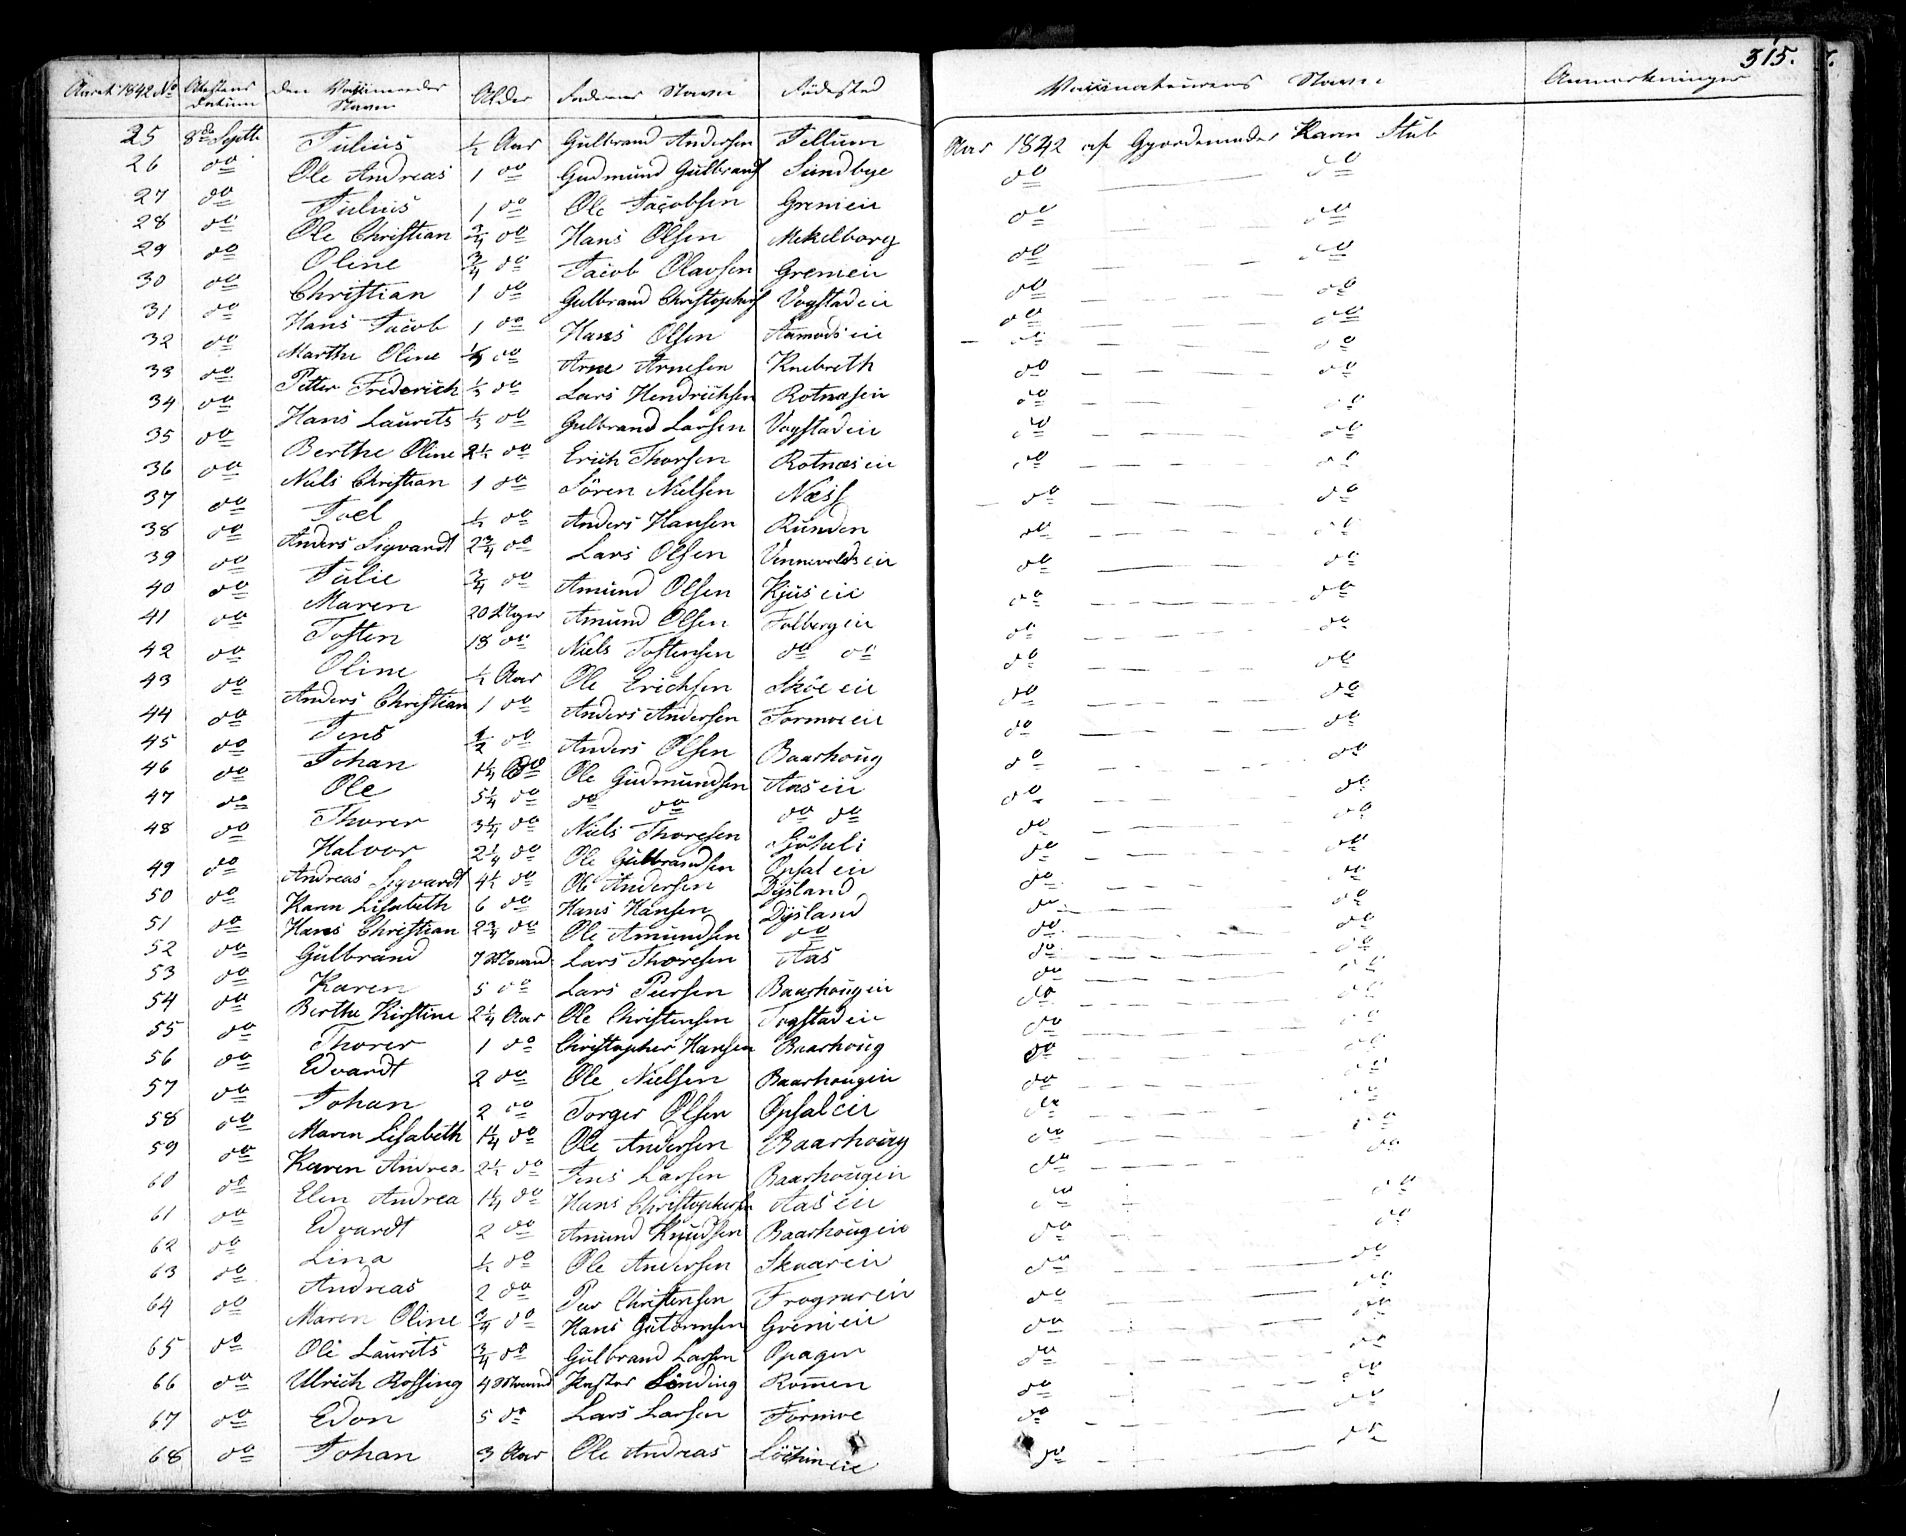 315.
Aaret 1842 No | Attestens Datum | den Vaccineredes Navn | Alder | Faderens Navn | Födested | Vaccinateurens Navn | Anmærkninger
25 | 8de Septbr | Julius | ½ Aar | Gulbrand Andersen | Tellum | Aar 1842 af Gjordemoder Karen Stub
26 | do | Ole Andreas | 1 do | Gudmund Gulbrands | Sundbye | do — do
27 | do | Julius | 1 do | Ole Jacobsen | Gremeie | do — do
28 | do | Ole Christian | ¾ do | Hans Olsen | Mekelborg | do — do
29 | do | Oline | ¾ do | Jacob Olavsen | Gremeie | do — do
30 | do | Christian | 1 do | Gulbrand Christophers | Vogstadeie | do — do
31 | do | Hans Jacob | 1 do | Hans Olsen | Aamodseie | do — do
32 | do | Marthe Oline | do | Arne Arnesen | Knebreth | do — do
33 | do | Petter Frederich | ½ do | Lars Hendrichsen | Rotnæseie | do — do
34 | do | Hans Laurits | ½ do | Gulbrand Larsen | Vogstadeie | do — do
35 | do | Berthe Oline | 2½ do | Erich Thorsen | Rotnæseie | do — do
36 | do | Niels Christian | 1 do | Sören Nielsen | Næss | do — do
37 | do | Joel | ½ do | Anders Hansen | Runden | do — do
38 | do | Anders Sigvardt | 2¾ do | Lars Olsen | Vennevoldseie | do — do
39 | do | Julie | ¾ do | Amund Olsen | Kjuseie | do — do
40 | do | Maren | 20 Uger | Amund Olsen | Folbergeie | do — do
41 | do | Tosten | 18 do | Niels Tostensen | do do | do — do
42 | do | Oline | ½ Aar | Ole Erichsen | Sköeeie | do — do
43 | do | Anders Christian | 1 do | Anders Andersen | Formoeie | do — do
44 | do | Jens | ½ do | Anders Olsen | Baarhoug | do — do
45 | do | Johan | 1¼ do | Ole Gudmundsen | Aaseie | do — do
46 | do | Ole | 5¼ do | do do | do do | do — do
47 | do | Thorer | 3¼ do | Niels Thoresen | | do — do
48 | do | Halvor | 2¼ do | Ole Gulbrandsen | Opsaleie | do — do
49 | do | Andreas Sigvardt | 4½ do | Ole Andersen | Dysland | do — do
50 | do | Karen Lisabeth | 6 do | Hans Hansen | Dysland | do — do
51 | do | Hans Christian | 2¾ do | Ole Amundsen | do | do — do
52 | do | Gulbrand | 7 Maaned | Lars Thoresen | Aas | do — do
53 | do | Karen | 5 do | Lars Peersen | Baarhougeie | do — do
54 | do | Berthe Kirstine | 2¼ Aar | Ole Christensen | Fogstadeie | do — do
55 | do | Thorer | 1 do | Christopher Hansen | Baarhoug | do — do
56 | do | Edvardt | 2 do | Ole Nielsen | Baarhougeie | do — do
57 | do | Johan | 2 do | Torger Olsen | Opsaleie | do — do
58 | do | Maren Lisabeth | 1¼ do | Ole Andersen | Baarhoug | do — do
59 | do | Karen Andrea | 2½ do | Jens Larsen | Baarhougeie | do — do
60 | do | Elen Andrea | 1¼ do | Hans Christophersen | Aaseie | do — do
61 | do | Edvardt | 2 do | Amund Knudsen | Baarhougeie | do — do
62 | do | Lina | ½ do | Ole Andersen | Skaareie | do — do
63 | do | Andreas | 2 do | Peer Christensen | Frognareie | do — do
64 | do | Maren Oline | ¾ do | Hans Gutormsen | Gveneie | do — do
65 | do | Ole Laurits | ¾ do | Gulbrand Larsen | Opagen | do — do
66 | do | Ulrich Rossing | 4 Maaned | Pastor Sinding | Romen | do — do
67 | do | Edon | 5 do | Lars Larsen | Formoe | do — do
68 | do | Johan | 3 Aar | Ole Andreas | Löchineie | do — do